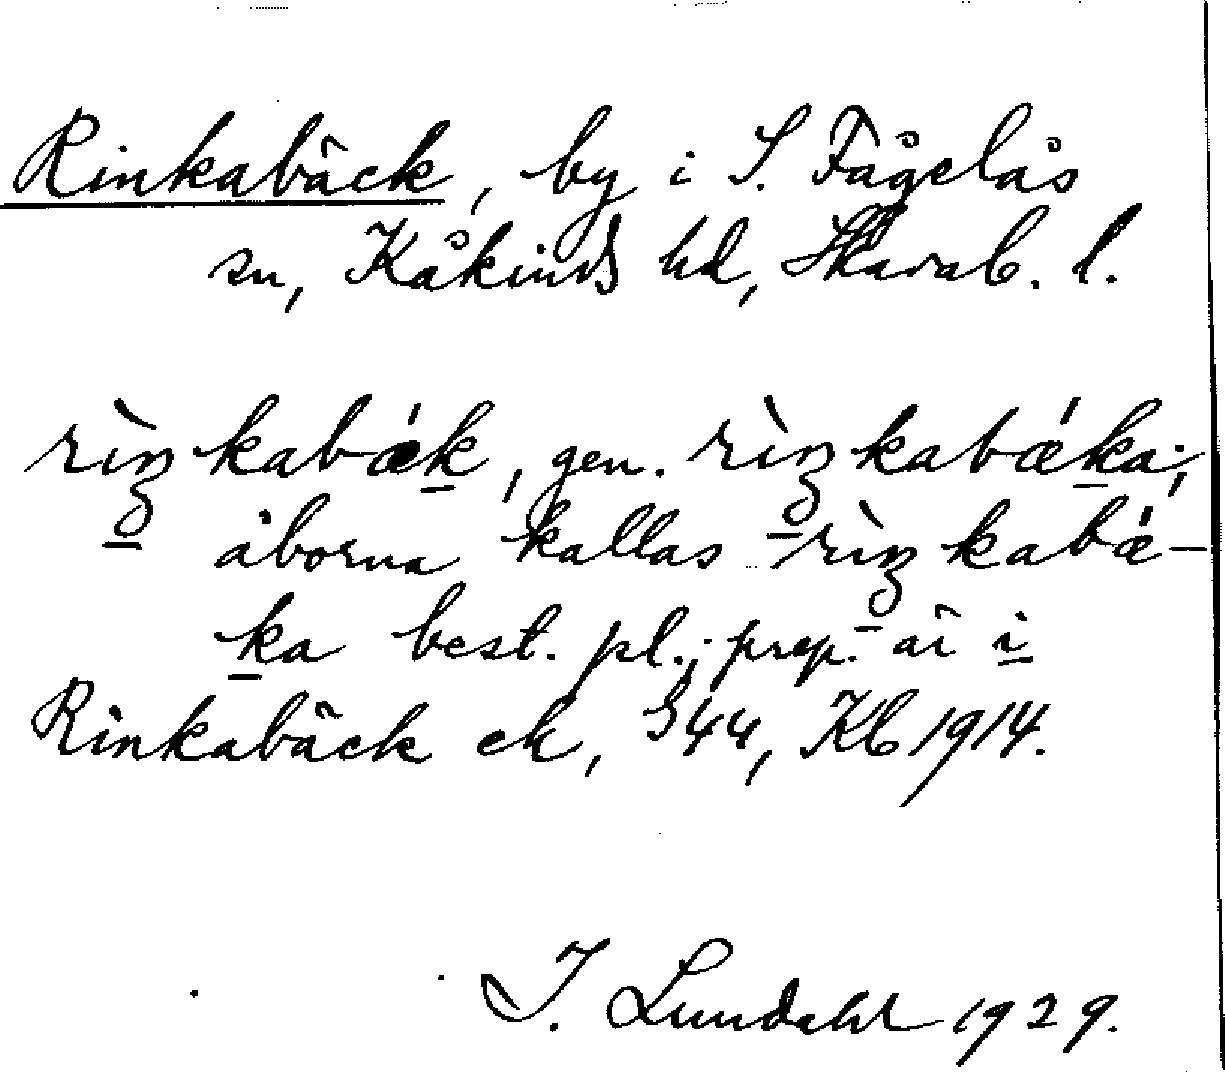 Rinkabäck, by i S. Fågelås
sn, Kåkinds hd, Skarab. l.
rìŋkabǽk, gen. rìŋkabǽka;
åborna kallas rìŋkabǽ-
ka best. pl.; prep. är i
Rinkabäck ek, 344, Kb 1914.
I. Lundahl 1929.